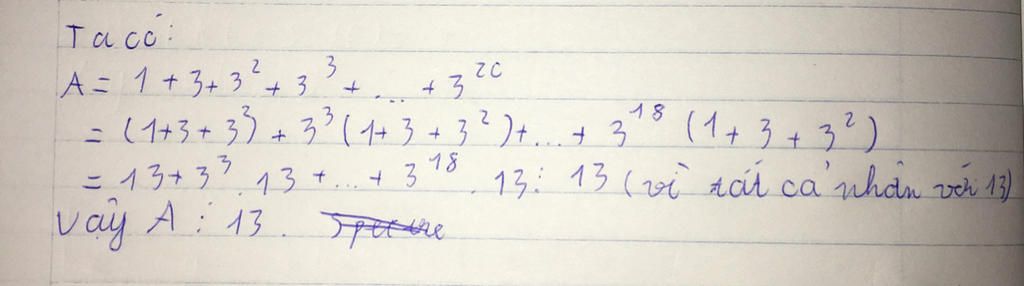 Ta có:
A = 1 + 3 + 3² + 3³ + ... + 3²⁰
= (1+3+3²) + 3³(1+3+3²)+...+ 3¹⁸ (1+3+3²)
= 13+3³.13+...+3¹⁸.13 ⋮ 13 (vì tất cả nhân với 13)
Vậy A ⋮ 13.